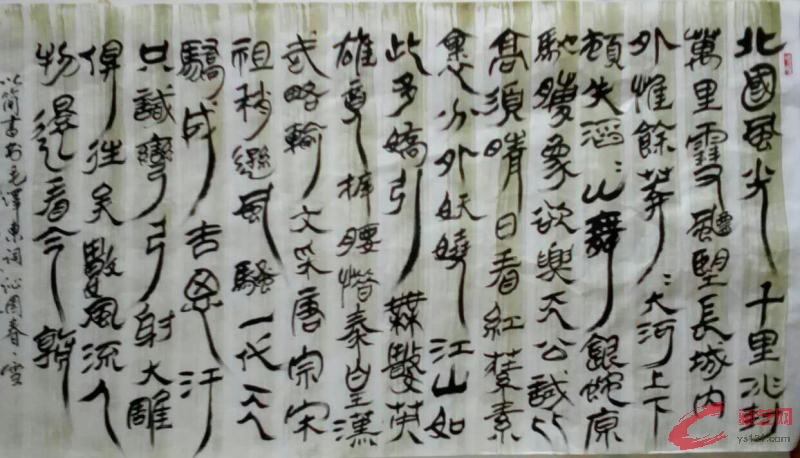 北國風光千里冰封
萬里雪飄望長城内
外惟餘莽：大河上下
頓失滔：山舞銀蛇原
馳臘象欲與天公試比
高須晴日看紅裝素
裹分外妖嬈江山如
此多嬌引無數英
雄競折腰惜秦皇漢
武略輸文采唐宗宋
祖稍遜風騷一代天
驕成吉思汗
只識彎弓射大雕
俱往矣數風流人
物還看今朝
以简书毛澤東词沁園春·雪